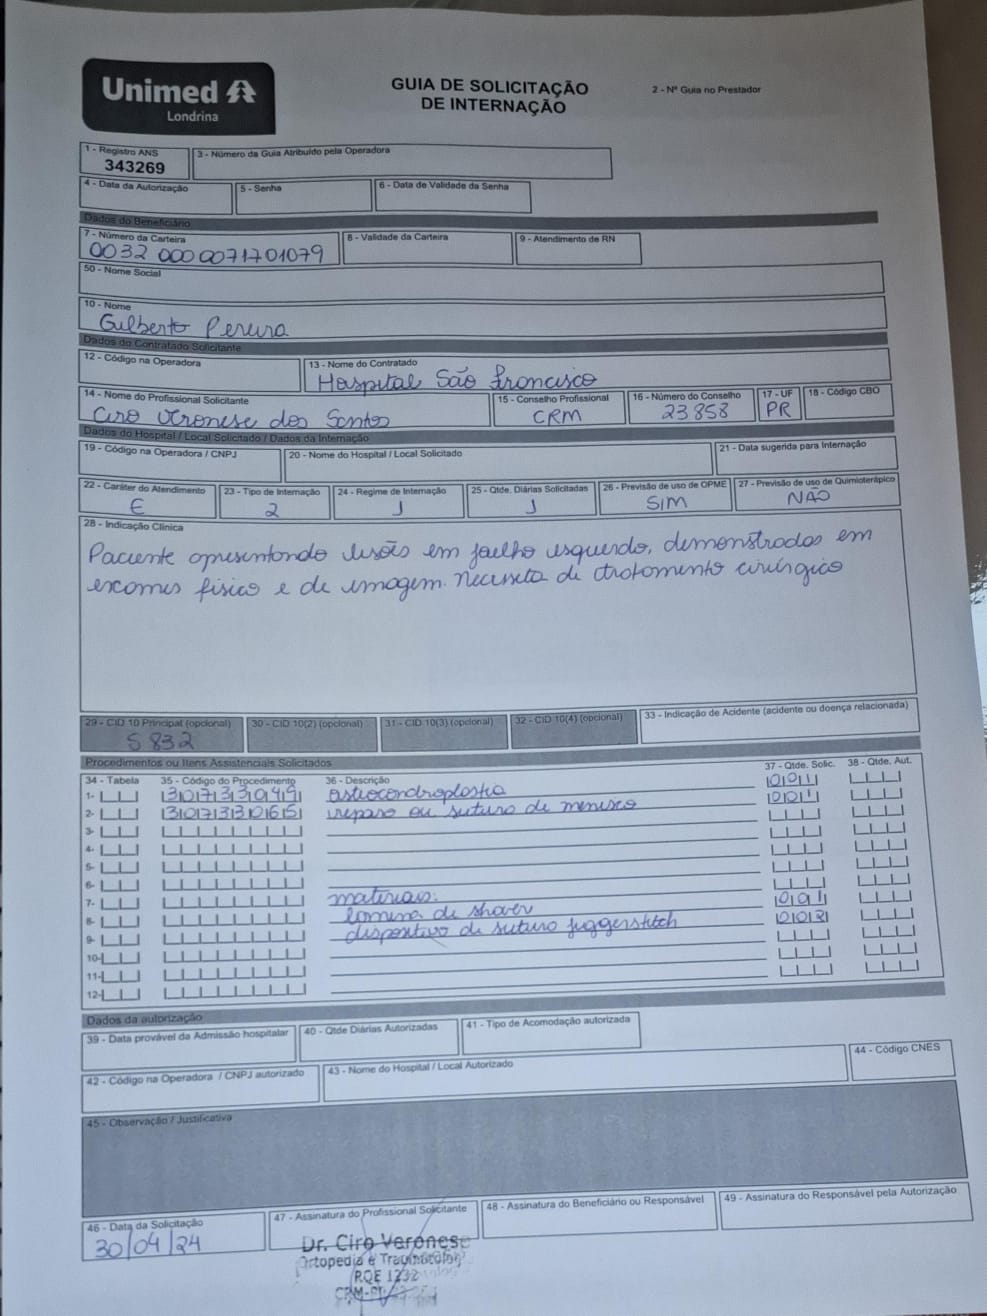 Unimed
Londrina
GUIA DE SOLICITAÇÃO
DE INTERNAÇÃO
2 - Nº Guia no Prestador
1 - Registro ANS
343269
3 - Número da Guia Atribuído pela Operadora
4 - Data da Autorização
5 - Senha
6 - Data de Validade da Senha
Dados do Beneficiário
7 - Número da Carteira
0032 000 0071701079
8 - Validade da Carteira
9 - Atendimento de RN
50 - Nome Social
10 - Nome
Gilberto Pereira
Dados do Contratado Solicitante
12 - Código na Operadora
13 - Nome do Contratado
Hospital São Francisco
14 - Nome do Profissional Solicitante
Ciro Veronese dos Santos
15 - Conselho Profissional
CRM
16 - Número do Conselho
23858
17 - UF
PR
18 - Código CBO
Dados do Hospital / Local Solicitado / Dados da Internação
19 - Código na Operadora / CNPJ
20 - Nome do Hospital / Local Solicitado
21 - Data sugerida para Internação
22 - Caráter do Atendimento
E
23 - Tipo de Internação
2
24 - Regime de Internação
1
25 - Qtde. Diárias Solicitadas
1
26 - Previsão de uso de OPME
SIM
27 - Previsão de uso de Quimioterápico
NÃO
28 - Indicação Clínica
Paciente apresentando lesões em joelho esquerdo, demonstradas em
exames físico e de imagem. Necessita de tratamento cirúrgico
29 - CID 10 Principal (opcional)
S832
30 - CID 10(2) (opcional)
31 - CID 10(3) (opcional)
32 - CID 10(4) (opcional)
33 - Indicação de Acidente (acidente ou doença relacionada)
Procedimentos ou Itens Assistenciais Solicitados
34 - Tabela
35 - Código do Procedimento
36 - Descrição
37 - Qtde. Solic.
38 - Qtde. Aut.
1- osteocondroplastia 001
2- reparo ou sutura de menisco 001
3-
4-
5-
6-
7- materiais:
8- lamina de shaver
9- dispositivo de sutura
10-
11-
12-
Dados da autorização
39 - Data provável da Admissão hospitalar
40 - Qtde Diárias Autorizadas
41 - Tipo de Acomodação autorizada
42 - Código na Operadora / CNPJ autorizado
43 - Nome do Hospital / Local Autorizado
44 - Código CNES
45 - Observação / Justificativa
46 - Data da Solicitação
30/04/24
47 - Assinatura do Profissional Solicitante
48 - Assinatura do Beneficiário ou Responsável
49 - Assinatura do Responsável pela Autorização
Dr. Ciro Veronese
Ortopedia e Traumatologia
RQE 1232